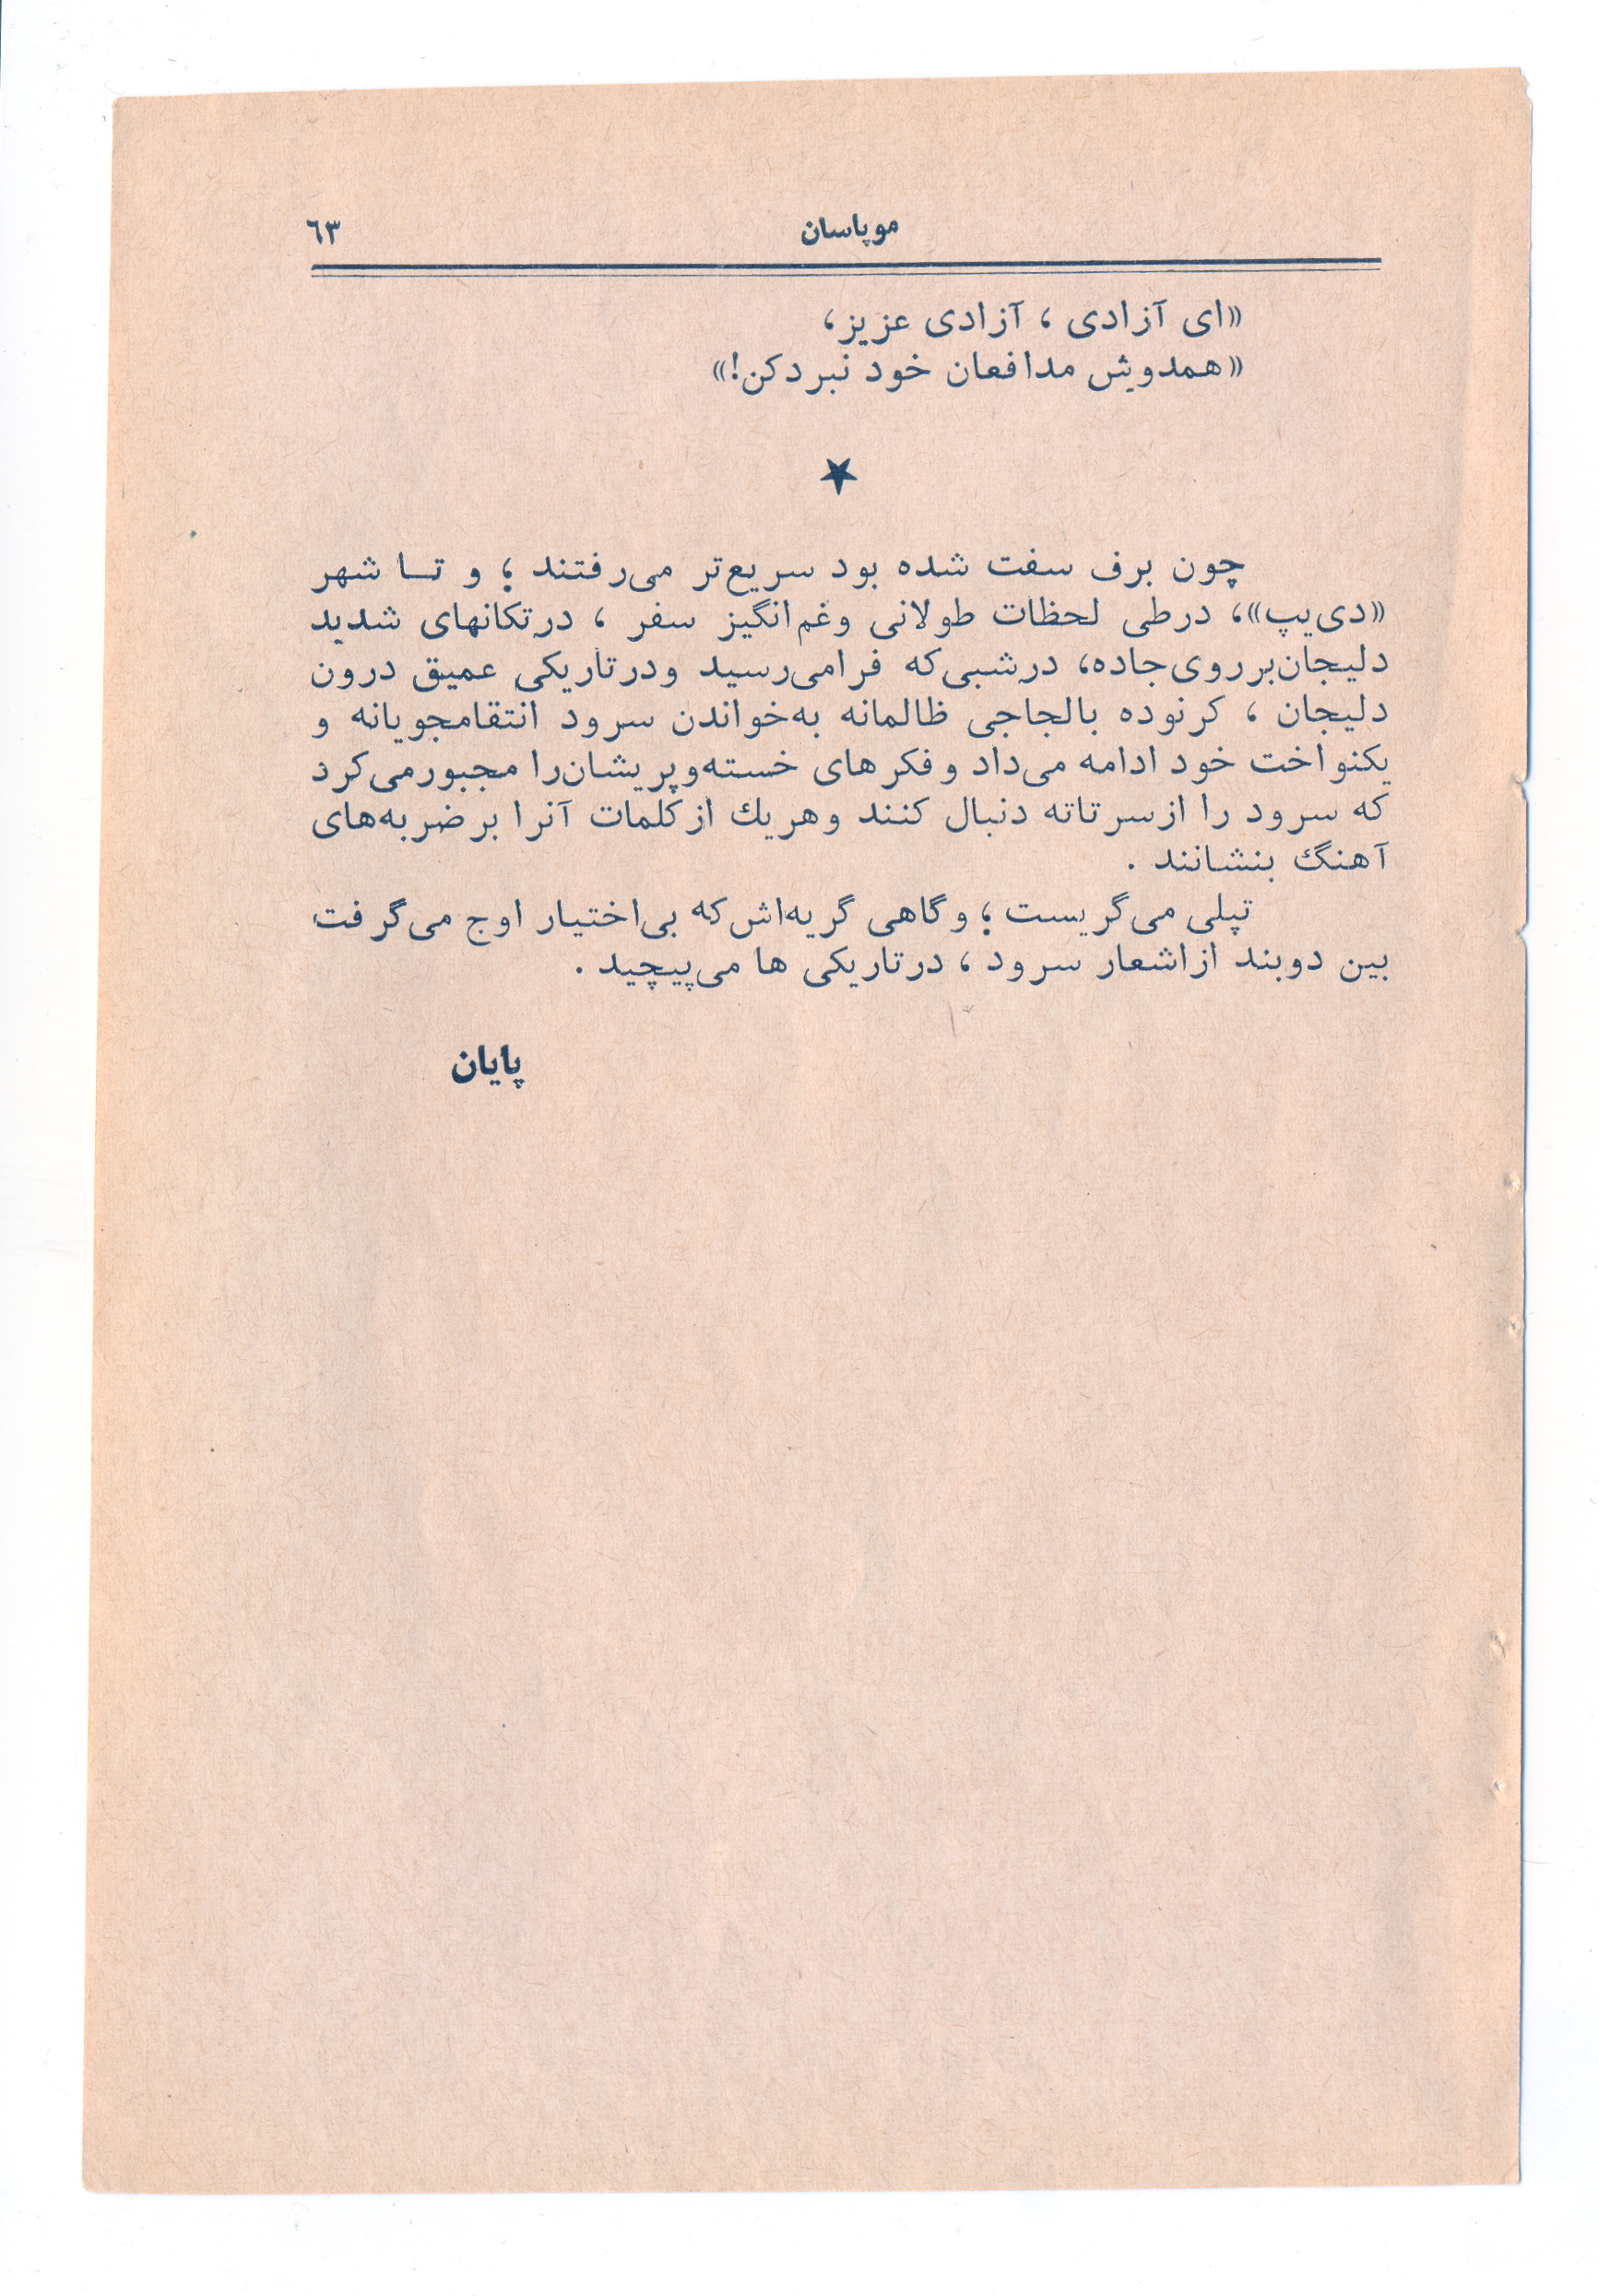 موپاسان ٦٣
«ای آزادی ، آزادی عزیز،
«همدوش مدافعان خود نبردکن!»
★
چون برف سفت شده بود سریع‌تر می‌رفتند ؛ و تــا شهر
«دی‌یپ»، درطی لحظات طولانی وغم‌انگیز سفر ، درتکانهای شدید
دلیجان‌برروی‌جاده، درشبی‌که فرامی‌رسید ودرتاریکی عمیق درون
دلیجان ، کرنوده بالجاجی ظالمانه به‌خواندن سرود انتقامجویانه و
یکنواخت خود ادامه می‌داد وفکرهای خسته‌وپریشان‌را مجبورمی‌کرد
که سرود را ازسرتاته دنبال کنند وهریك ازکلمات آنرا برضربه‌های
آهنگ بنشانند .
تپلی می‌گریست ؛ وگاهی گریه‌اش‌که بی‌اختیار اوج می‌گرفت
بین دوبند ازاشعار سرود ، درتاریکی ها می‌پیچید .
پایان